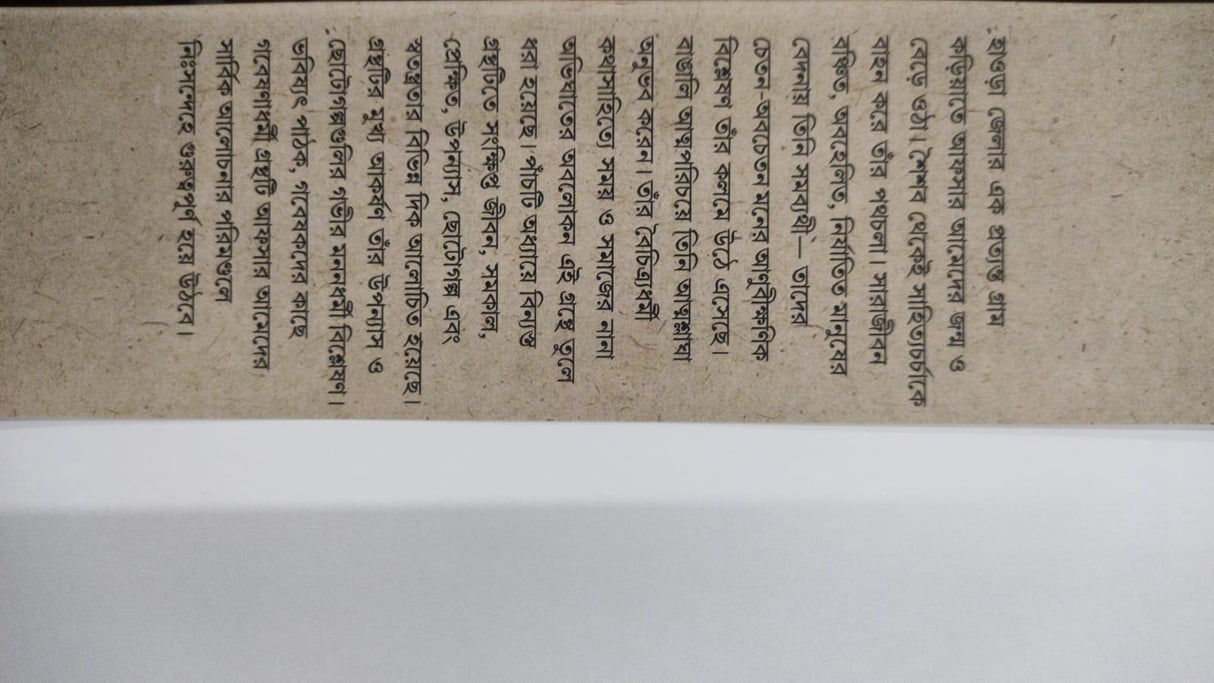 হাওড়া জেলার এক প্রত্যন্ত গ্রাম
কড়িয়াতে আফসার আমেদের জন্ম ও
বেড়ে ওঠা। শৈশব থেকেই সাহিত্যচর্চাকে
বাহন করে তাঁর পথচলা। সারাজীবন
বঞ্চিত, অবহেলিত, নির্যাতিত মানুষের
বেদনায় তিনি সমব্যথী— তাদের
চেতন-অবচেতন মনের আণুবীক্ষণিক
বিশ্লেষণ তাঁর কলমে উঠে এসেছে।
বাঙালি আত্মপরিচয়ে তিনি আত্মশ্লাঘা
অনুভব করেন। তাঁর বৈচিত্র্যধর্মী
কথাসাহিত্যে সময় ও সমাজের নানা
অভিঘাতের অবলোকন এই গ্রন্থে তুলে
ধরা হয়েছে। পাঁচটি অধ্যায়ে বিন্যস্ত
গ্রন্থটিতে সংক্ষিপ্ত জীবন, সমকাল,
প্রেক্ষিত, উপন্যাস, ছোটোগল্প এবং
স্বতন্ত্রতার বিভিন্ন দিক আলোচিত হয়েছে।
গ্রন্থটির মুখ্য আকর্ষণ তাঁর উপন্যাস ও
ছোটোগল্পগুলির গভীর মননধর্মী বিশ্লেষণ।
ভবিষ্যৎ পাঠক, গবেষকদের কাছে
গবেষণাধর্মী গ্রন্থটি আফসার আমেদের
সার্বিক আলোচনার পরিমণ্ডলে
নিঃসন্দেহে গুরুত্বপূর্ণ হয়ে উঠবে।